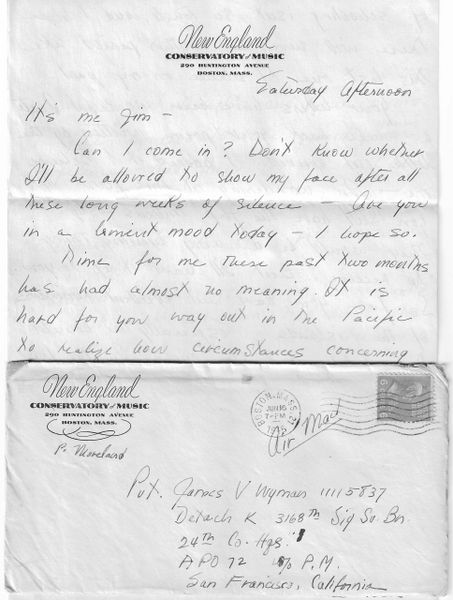 New England
CONSERVATORY OF MUSIC
290 HUNTINGTON AVENUE
BOSTON, MASS.
Saturday Afternoon
It's me Jim -
Can I come in? Don't know whether
I'll be allowed to show my face after all
these long weeks of silence - Are you
in a lenient mood today - I hope so.
Time for me these past two months
has had almost no meaning. It is
hard for you way out in the Pacific
to realize how circumstances concerning
New England
CONSERVATORY OF MUSIC
290 HUNTINGTON AVENUE
BOSTON, MASS.
P. Moreland
BOSTON, MASS.
JUN 16
7-PM
Air Mail
Pvt. James V Wyman 11115837
Detach K 3168th Sig Sv. Bn.
24th Co. Hqs.
APO 72 c/o P.M.
San Francisco, California